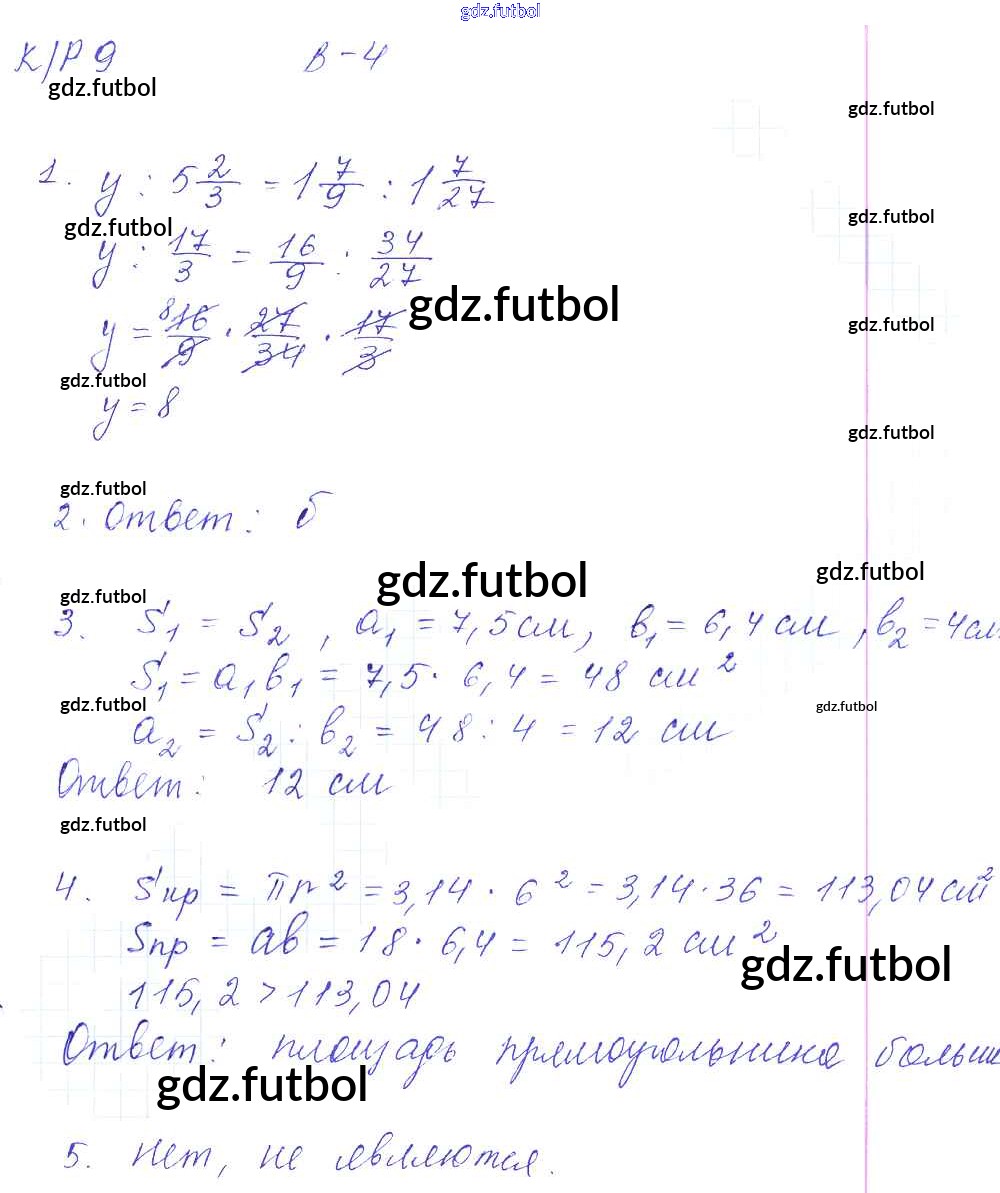 gdz.futbol
К/Р 9 В-4
gdz.futbol
gdz.futbol
1. y : 5 2/3 = 1 7/9 : 1 7/27
gdz.futbol
gdz.futbol
y : 17/3 = 16/9 : 34/27
gdz.futbol
y = 8 16/9 · 27/34 · 17/3
gdz.futbol
gdz.futbol
y = 8
gdz.futbol
gdz.futbol
2. Ответ: б
gdz.futbol
gdz.futbol
gdz.futbol
3. S1 = S2, a1 = 7,5 см, в1 = 6,4 см, в2 = 4см
S1 = a1в1 = 7,5 · 6,4 = 48 см²
gdz.futbol
gdz.futbol
a2 = S2 : в2 = 48 : 4 = 12 см
Ответ: 12 см
gdz.futbol
4. Sкр = πr² = 3,14 · 6² = 3,14 · 36 = 113,04 см²
Sпр = ав = 18 · 6,4 = 115,2 см²
gdz.futbol
115,2 > 113,04
Ответ: площадь прямоугольника больше
gdz.futbol
5. Нет, не являются.